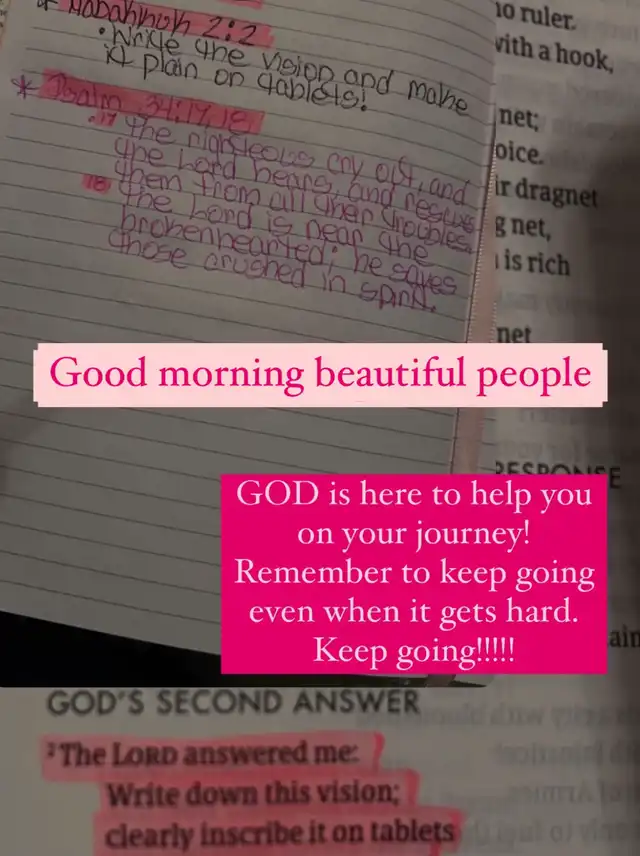 * Habakkuk 2:2
• Write the vision and make
it plain on tablets!
* Psalm 34:17,18
• 17 the righteous cry out, and
the Lord hears, and rescues
them from all their troubles.
18 the Lord is near the
brokenhearted; he saves
those crushed in spirit.
no ruler.
with a hook,
net;
dragnet
net,
is rich
net
RESPONSE
Good morning beautiful people
GOD is here to help you
on your journey!
Remember to keep going
even when it gets hard.
Keep going!!!!!
GOD'S SECOND ANSWER
2 The LORD answered me:
Write down this vision;
clearly inscribe it on tablets